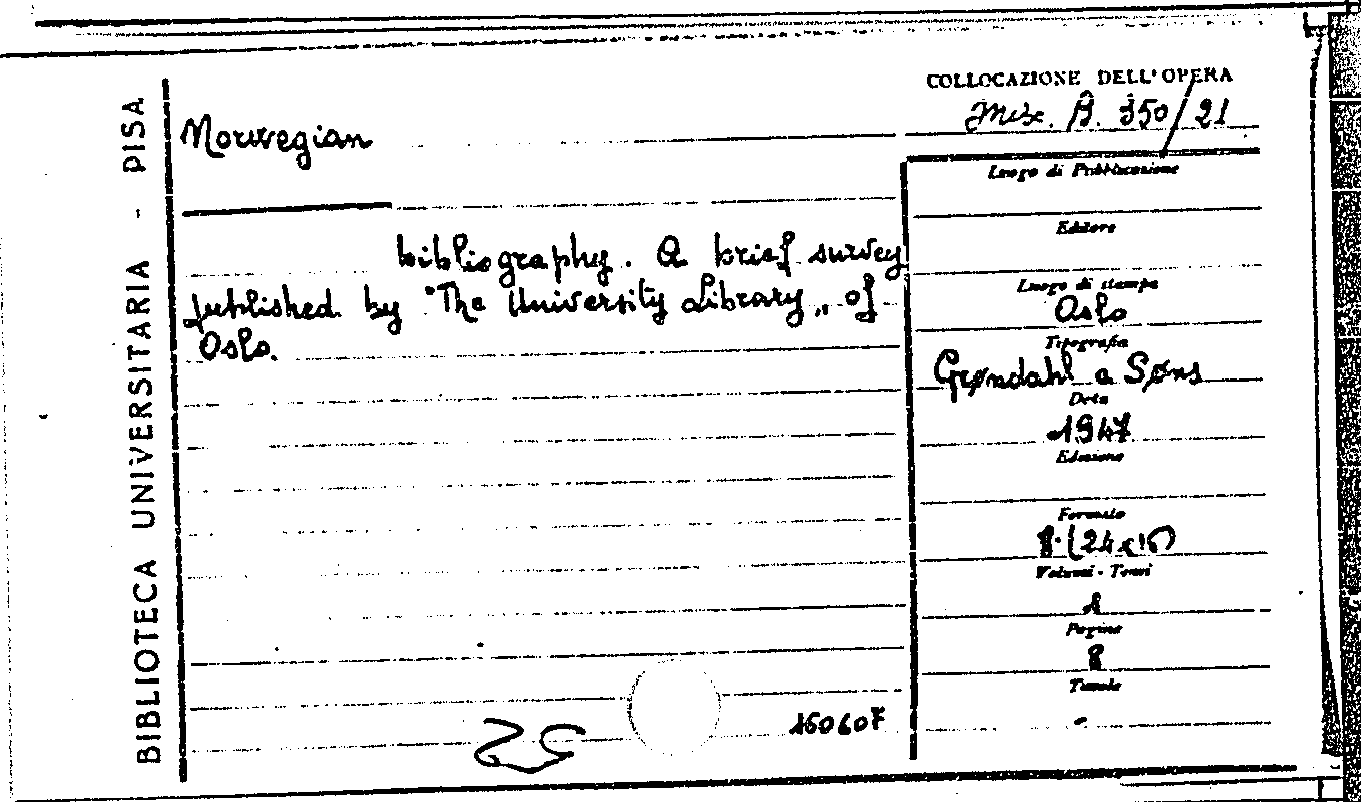 BIBLIOTECA UNIVERSITARIA - PISA
COLLOCAZIONE DELL'OPERA
Misc. B. 350/21
Norwegian
bibliography. A brief survey
published by "The University Library" of
Oslo.
Luogo di Pubblicazione
Editore
Luogo di stampa
Oslo
Tipografia
Grøndahl a Søns
Data
1947
Edizione
Formato
8.(24x15)
Volumi - Tomi
1
Pagine
8
Tavole
-
150607